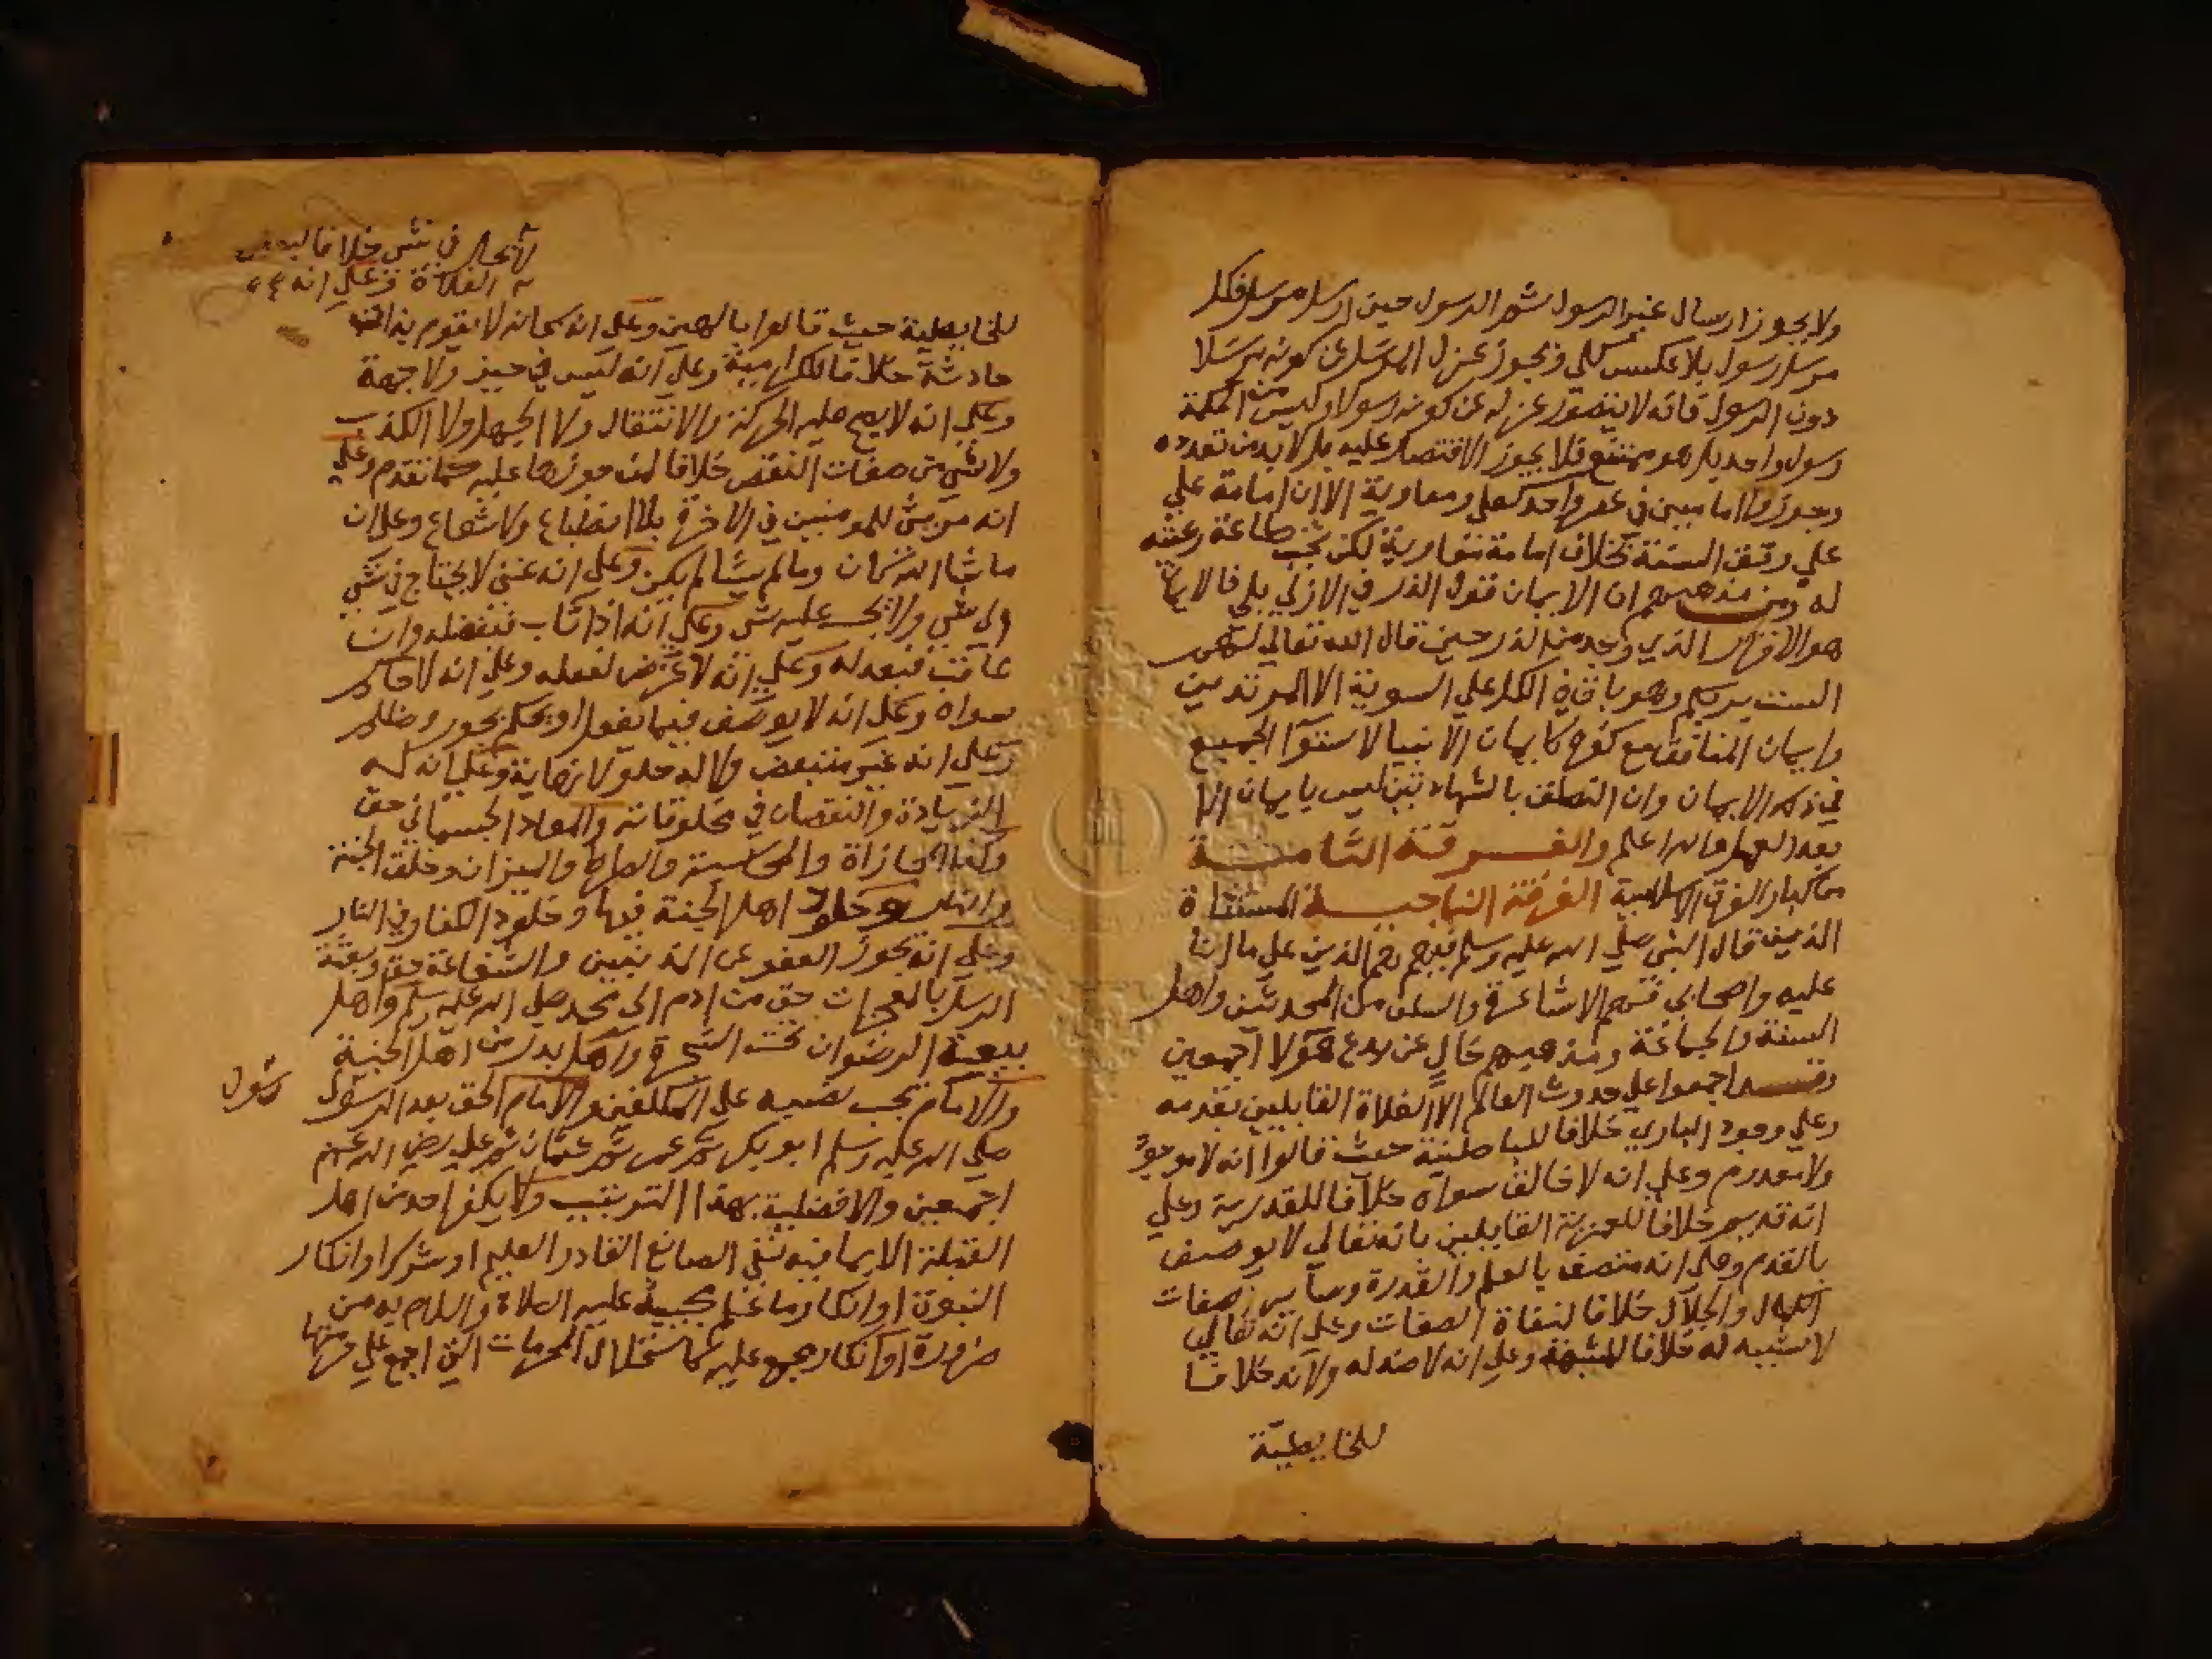 ولا يجوز ارسال غير الرسول ثم الرسول حين ارسل مرسل فكل
مرسل رسول بلا عكس كلي ويجوز عزل المرسل عن كونه مرسلا
دون الرسول فانه لا يتصور عزله عن كونه رسولا وليس من الحكمة
رسول واحد بل هو ممتنع فلا يجوز الاقتصار عليه بل لا بد من تعدده
وجوزوا امامين في عصر واحد كعلي ومعاوية الا ان امامة علي
علي وفق السنة بخلاف امامة معاوية لكن يجب طاعة رعيته
له ومن مذهبهم ان الايمان قول الذر في الازل بلى فالايمان
هو الاقرار الذي وجد من الذر حين قال الله تعالي لهم
الست بربكم وهو باق في الكل علي السوية الا المرتدين
وايمان المنافق مع كفره كايمان الانبيا لاستوآ الجميع
في ذلك الايمان وان التلفظ بالشهادتين ليس بايمان الا
بعد والله اعلم والفرقة الثامنة
من كبار الفرق الاسلامية الفرقة الناجية المستثناة
الذين قال النبي صلي الله عليه وسلم فيهم هم الذين علي ما انا
عليه واصحابي فهم الاشاعرة والسلف من المحدثين واهل
السنة والجماعة ومذهبهم خال عن بدع هؤلا اجمعين
وقد اجمعوا علي حدوث العالم الا الغلاة القايلين بقدمه
وعلي وجود الباري خلافا للباطنية حيث قالوا انه لا موجود
ولا معدوم وعلي انه لا خالق سواه خلافا للقدرية وعلي
انه قديم خلافا للمعمرية القايلين بانه تعالي لا يوصف
بالقدم وعلي انه متصف بالعلم والقدرة وساير صفات
الكمال والجلال خلافا لنفاة الصفات وعلي انه تعالي
لا شبيه له خلافا للمشبهة وعلي انه لا ضد له ولا ند خلافا
للخايطية
لا يحل في شي خلافا لبعض
الغلاة وعلي انه
للخايطية حيث قالوا بالهين وعلي انه سبحانه لا يقوم بذاته
حادثة خلافا للكرامية وعلي انه ليس في حيز ولا جهة
وعلي انه لا يصح عليه الحركة والانتقال ولا الجهل ولا الكذب
ولا شي من صفات النقص خلافا لمن جوزها عليه كما تقدم وعلي
انه مريئ للمومنين في الاخرة بلا انطباع ولا شعاع وعلي ان
ما شا الله كان وما لم يشا لم يكن وعلي انه غني لا يحتاج في شي
الي شي ولا يجب عليه شي وعلي انه اذا اثاب فبفضله وان
عاقب فبعدله وعلي انه لا غرض لفعله وعلي انه لا حاكم
سواه وعلي انه لا يوصف فيما يفعل او يحكم بجور وظلم
وعلي انه غير متبعض ولا له حد ولا نهاية وعلي ان له
الزيادة والنقصان في مخلوقاته والمعاد الجسماني حق
وكذا المجازاة والمحاسبة والصراط والميزان وخلق الجنة
والنار وخلود اهل الجنة فيها وخلود الكفار في النار
وعلي انه يجوز العفو عن المذنبين والشفاعة حق وبعثة
الرسل بالمعجزات حق من ادم الي محمد صلي الله عليه وسلم واهل
بيعة الرضوان تحت الشجرة واهل بدر من اهل الجنة
والامام يجب نصبه علي المكلفين والامام الحق بعد الرسول
رسول
صلي الله عليه وسلم ابو بكر ثم عمر ثم عثمان ثم علي رضي الله عنهم
اجمعين والافضلية بهذا الترتيب ولا يكفر احد من اهل
القبلة الا بما فيه نفي الصانع القادر العليم او شرك او انكار
النبوة او انكار ما علم مجيئه عليه الصلاة والسلام به من
ضرورة او انكار مجمع عليه كاستحلال المحرمات التي اجمع علي حرمتها